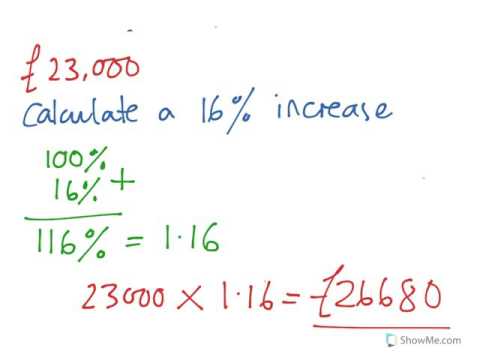 £23,000
Calculate a 16% increase
100%
16% +
116% = 1·16
23000 × 1·16 = £26680
ShowMe.com